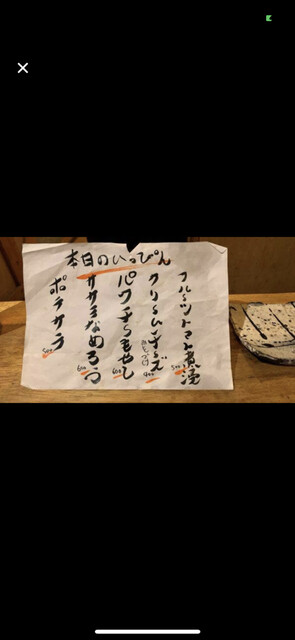 本日のいっぴん
フルーツトマト煮浸
500
クリームチーズ
みそづけ
400
パクチーもやし
600
ササミなめろう
600
ポテサラ
500